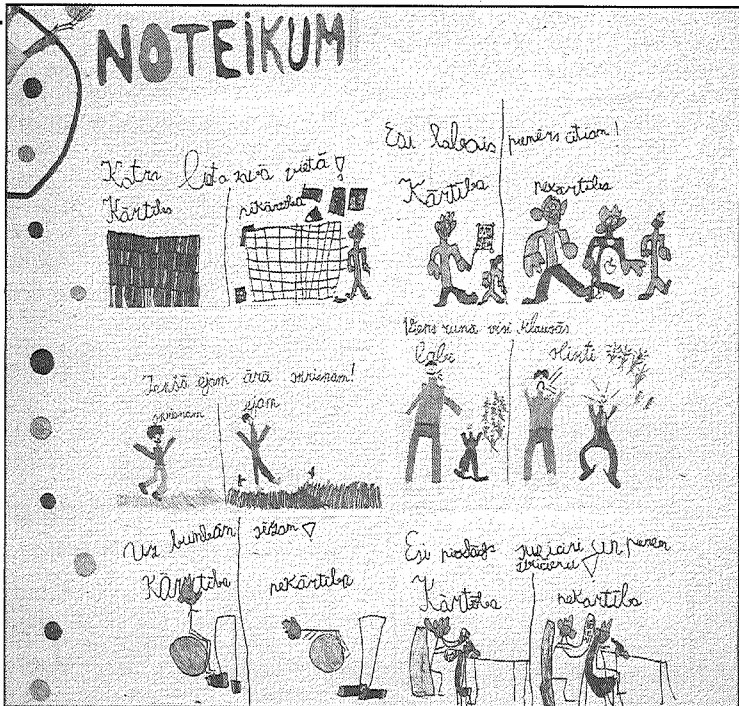 NOTEIKUM
Katra lieta savā vietā!
Kārtība
nekārtība
Esi labais piemērs citiem!
Kārtība nekārtība
Iekšā ejam ārā skrienam!
skrienam ejam
Viens runā visi klausās
Labi slikti
Uz bumbām sēžam!
Kārtība nekārtība
Esi pieklājīgs
Kārtība nekārtība